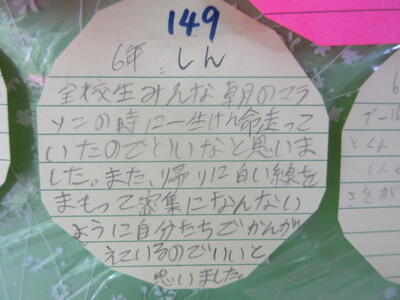 149
6年 しん
全校生みんな朝のマラ
ソンの時に一生けん命走って
いたのでといいなと思いま
した。また、帰りに白い線を
まもって密集になんない
ように自分たちでかんが
えているのでいいと
思いました。